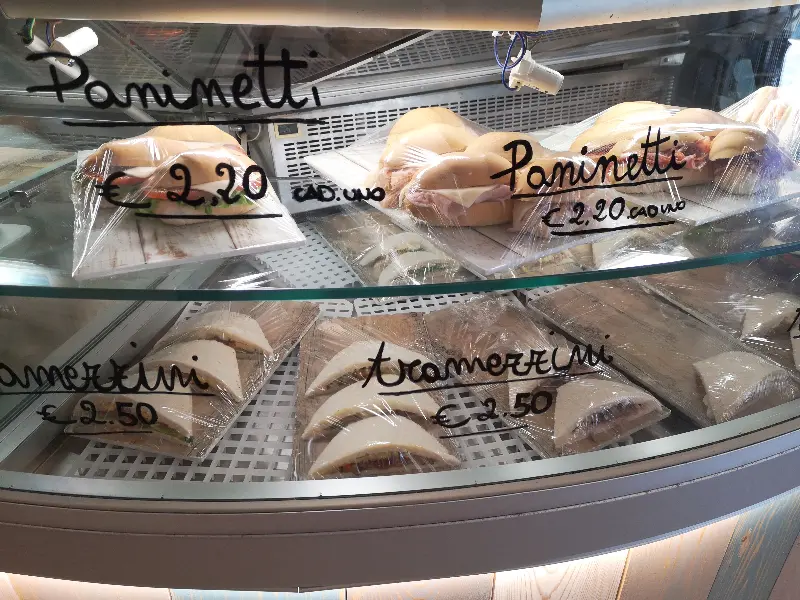 Paninetti
€ 2,20 CAD. UNO
Paninetti
€ 2,20 CAD UNO
amezzini
€ 2.50
tramezzini
€ 2.50